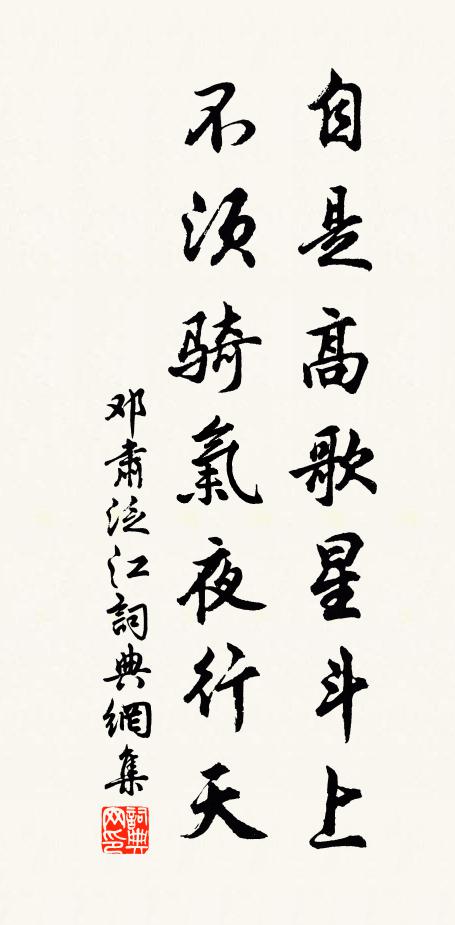 自是高歌星斗上
不须騎氣夜行天
邓肅泛江詞典網集
詞典网印